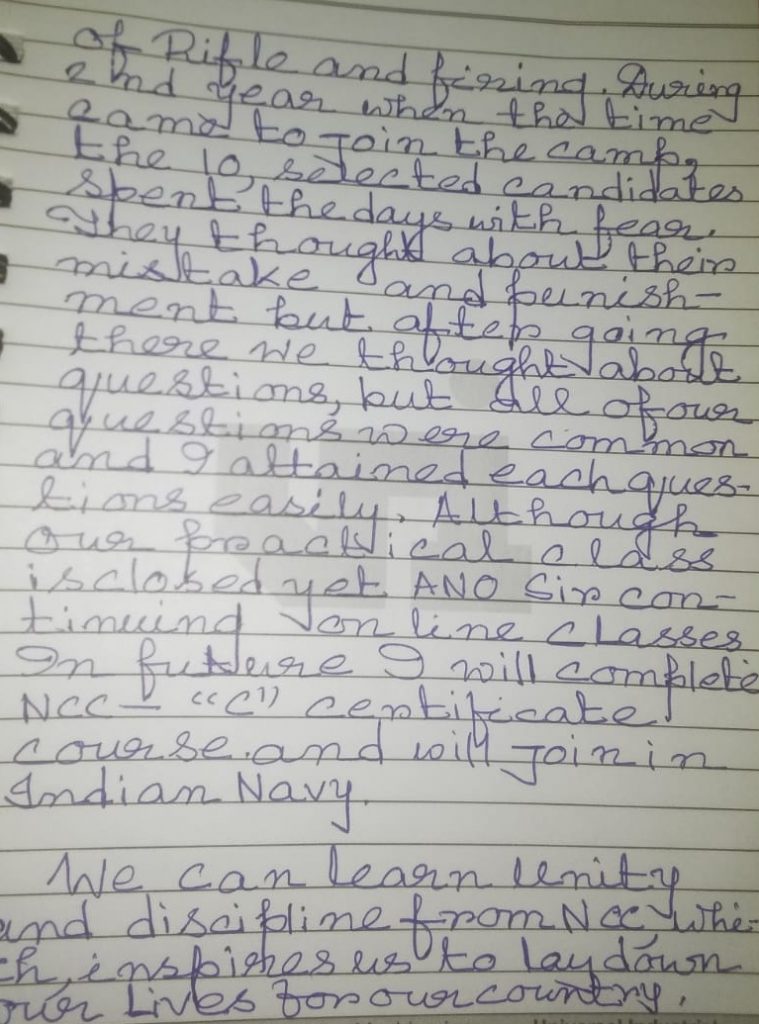 of Rifle and firing. During
2nd year when the time
came to join the camp,
the 10, selected candidates
spent the days with fear.
They thought about their
mistake and punish-
ment but after going
there we thought about
questions, but all of our
questions were common
and I attained each ques-
tions easily. Although
our practical class
is closed yet ANO Sir con-
tinuing on line classes
In future I will complete
NCC - "C" certificate
course. and will join in
Indian Navy.
We can learn unity
and discipline from NCC, whi-
ch, inspires us to lay down
our lives for our country.